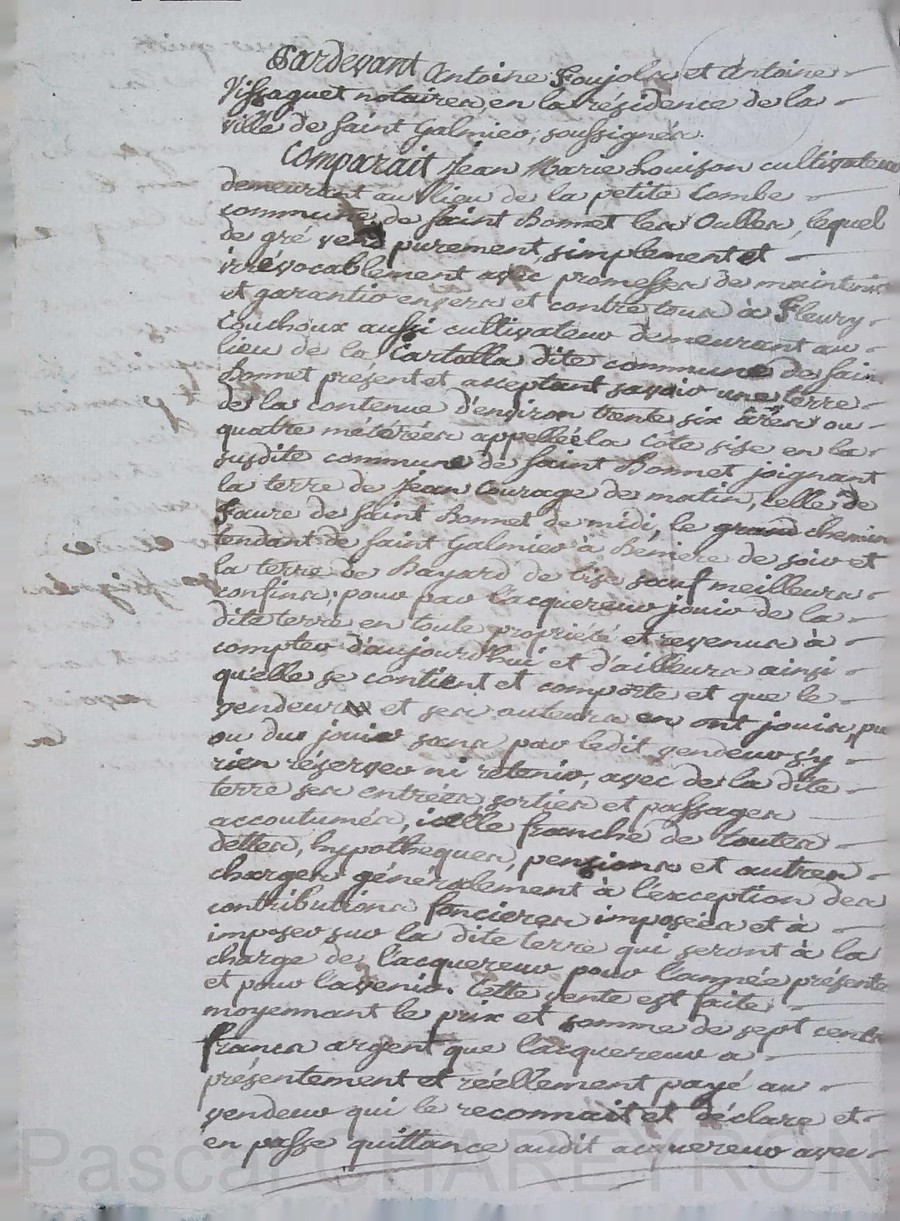 Pardevant Antoine Foujols et Antoine
Vissaguet notaires en la résidence de la
ville de Saint Galmier, soussignés.
Comparait Jean Marie Louison cultivateur
demeurant au lieu de la petite Combe
commune de Saint Bonnet les Oulles, lequel
de gré vend purement, simplement et
irrévocablement avec promesses de maintenir
et garantir envers et contre tous à Fleury
Couchoux aussi cultivateur demeurant au
lieu de la dite commune de Saint
Bonnet présent et acceptant savoir une terre
de la contenue d'environ trente six ares ou
quatre métérées appellée la Cote sise en la
susdite commune de Saint Bonnet joignant
la terre de Jean Courage de matin, celle de
Faure de Saint Bonnet de midi, le grand chemin
tendant de Saint Galmier à de soir et
la terre de Bayard de bise sauf meilleurs
confins; pour par l'acquereur jouir de la
dite terre en toute propriété et revenus à
compter d'aujourd'hui et d'ailleurs ainsi
qu'elle se contient et comporte et que le
vendeur et ses auteurs en ont jouis, pu
ou du jouir sans par ledit vendeur s'y
rien réserver ni retenir, avec de la dite
terre ses entrées, sorties et passages
accoutumés, icelle franche de toutes
dettes, hypotheques, pensions et autres
charges généralement à l'exception des
contributions foncieres imposées et à
imposer sur la dite terre qui seront à la
charge de l'acquereur pour l'année présente
et pour l'avenir. Cette vente est faite
moyennant le prix et somme de sept cents
francs argent que l'acquereur a
présentement et réellement payé au
vendeur qui le reconnait et déclare et
en passe quittance audit acquereur avec
Pascal CHAREYRON